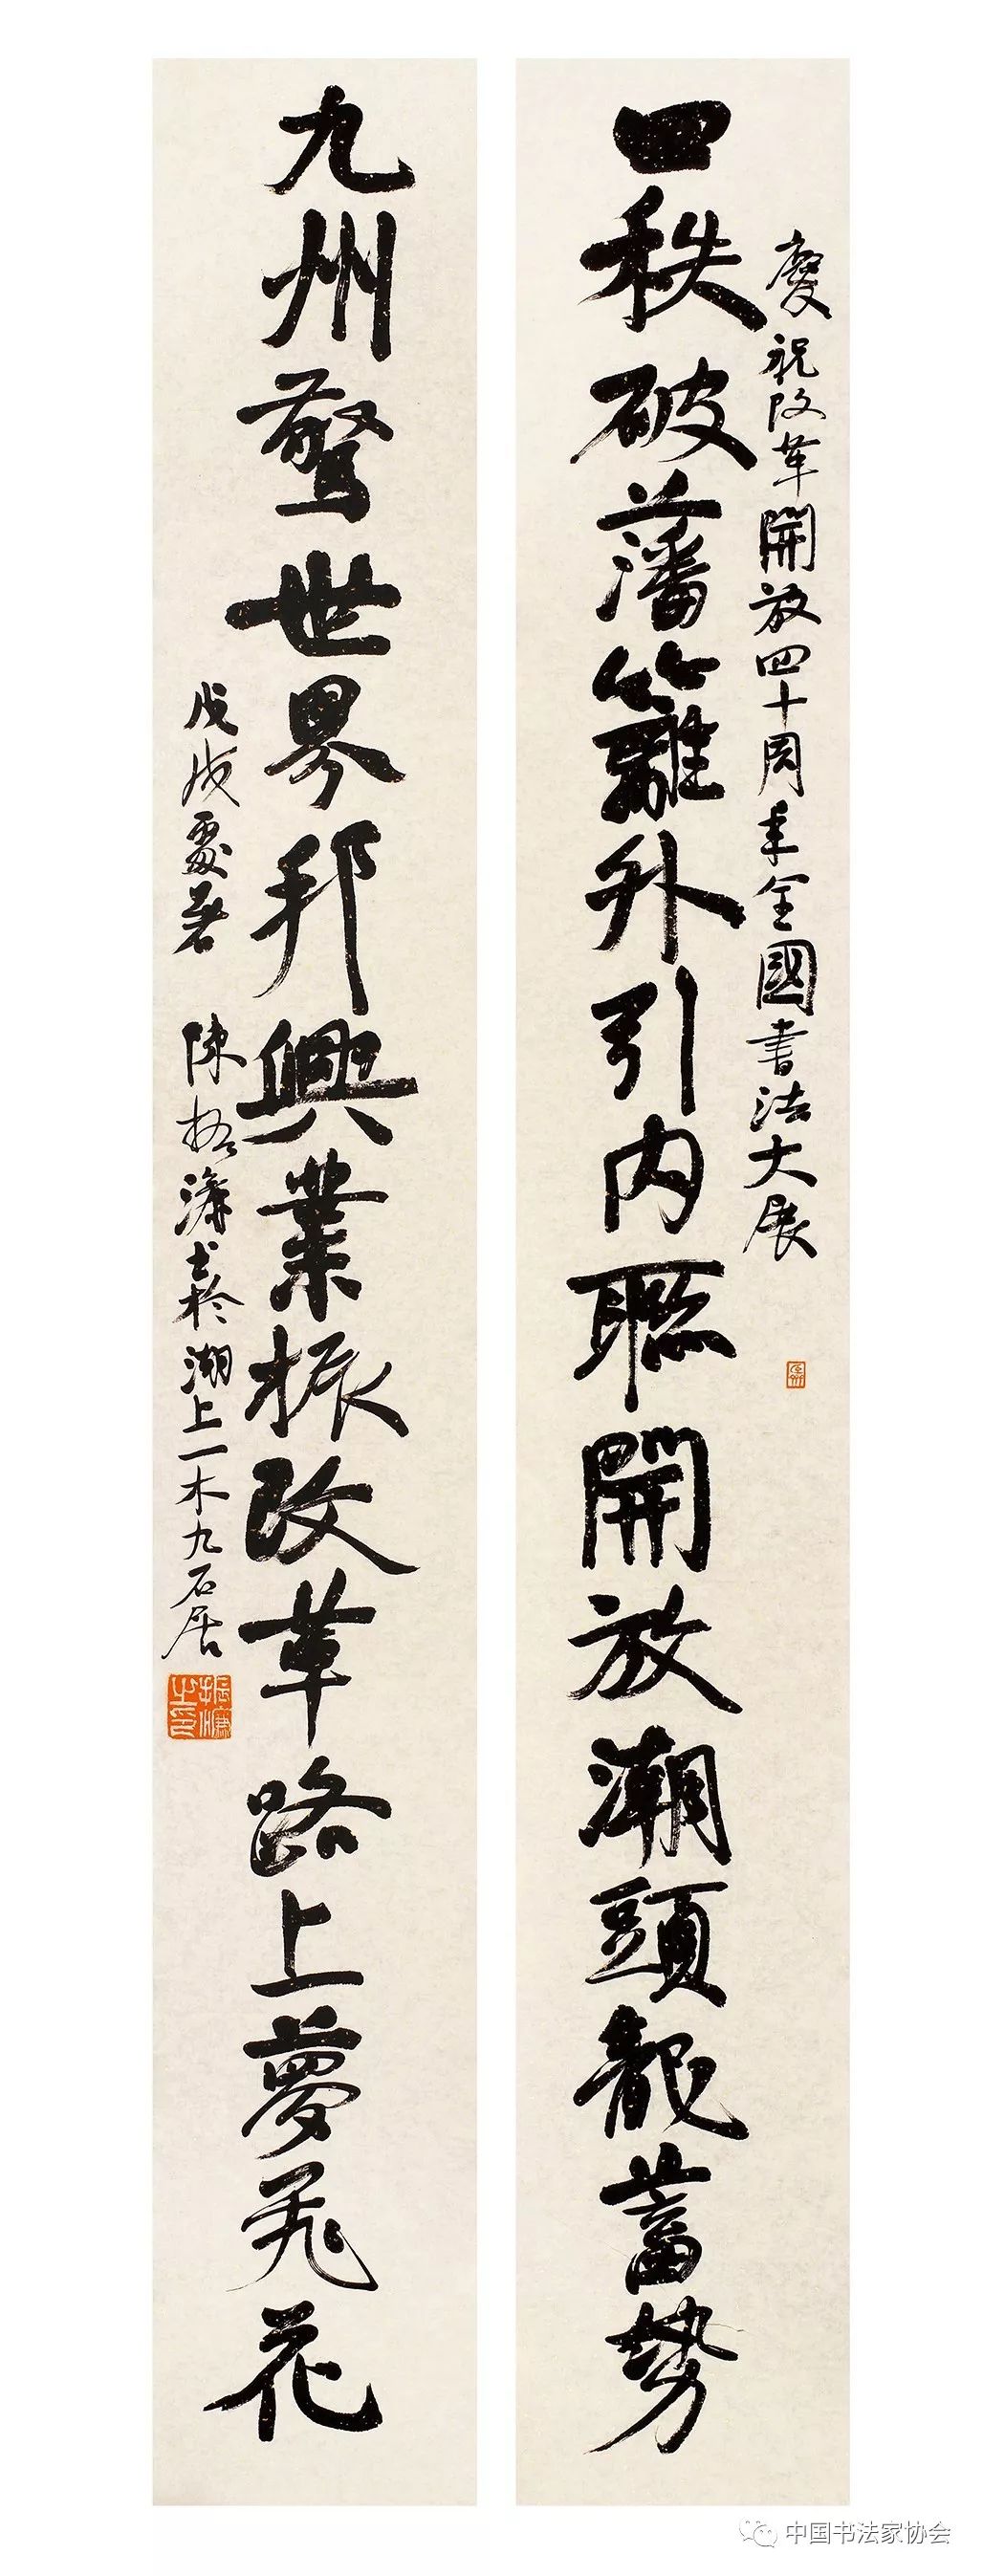 慶祝改革開放四十周年全國書法大展
四秩破藩籬外引内聯開放潮頭龍蓄勢
九州驚世界邦興業振改革路上夢飛花
戊戌處暑 陳振濂書於湖上一木九石居
振濂之印
中国书法家协会